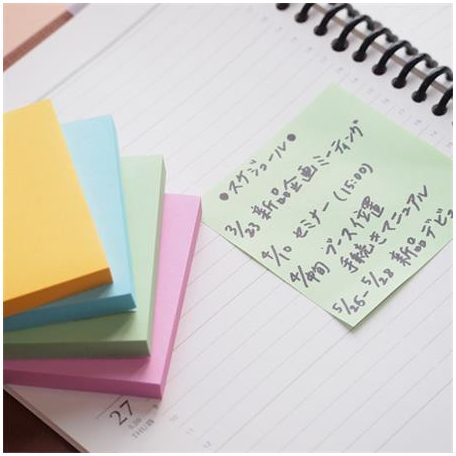 ●スケジュール●
3/23 新品企画ミーティング
4/10 セミナー(15:00)
4/旬 ブース位置
手続きマニュアル
5/26-5/28 新品デビュ
27
THU/木